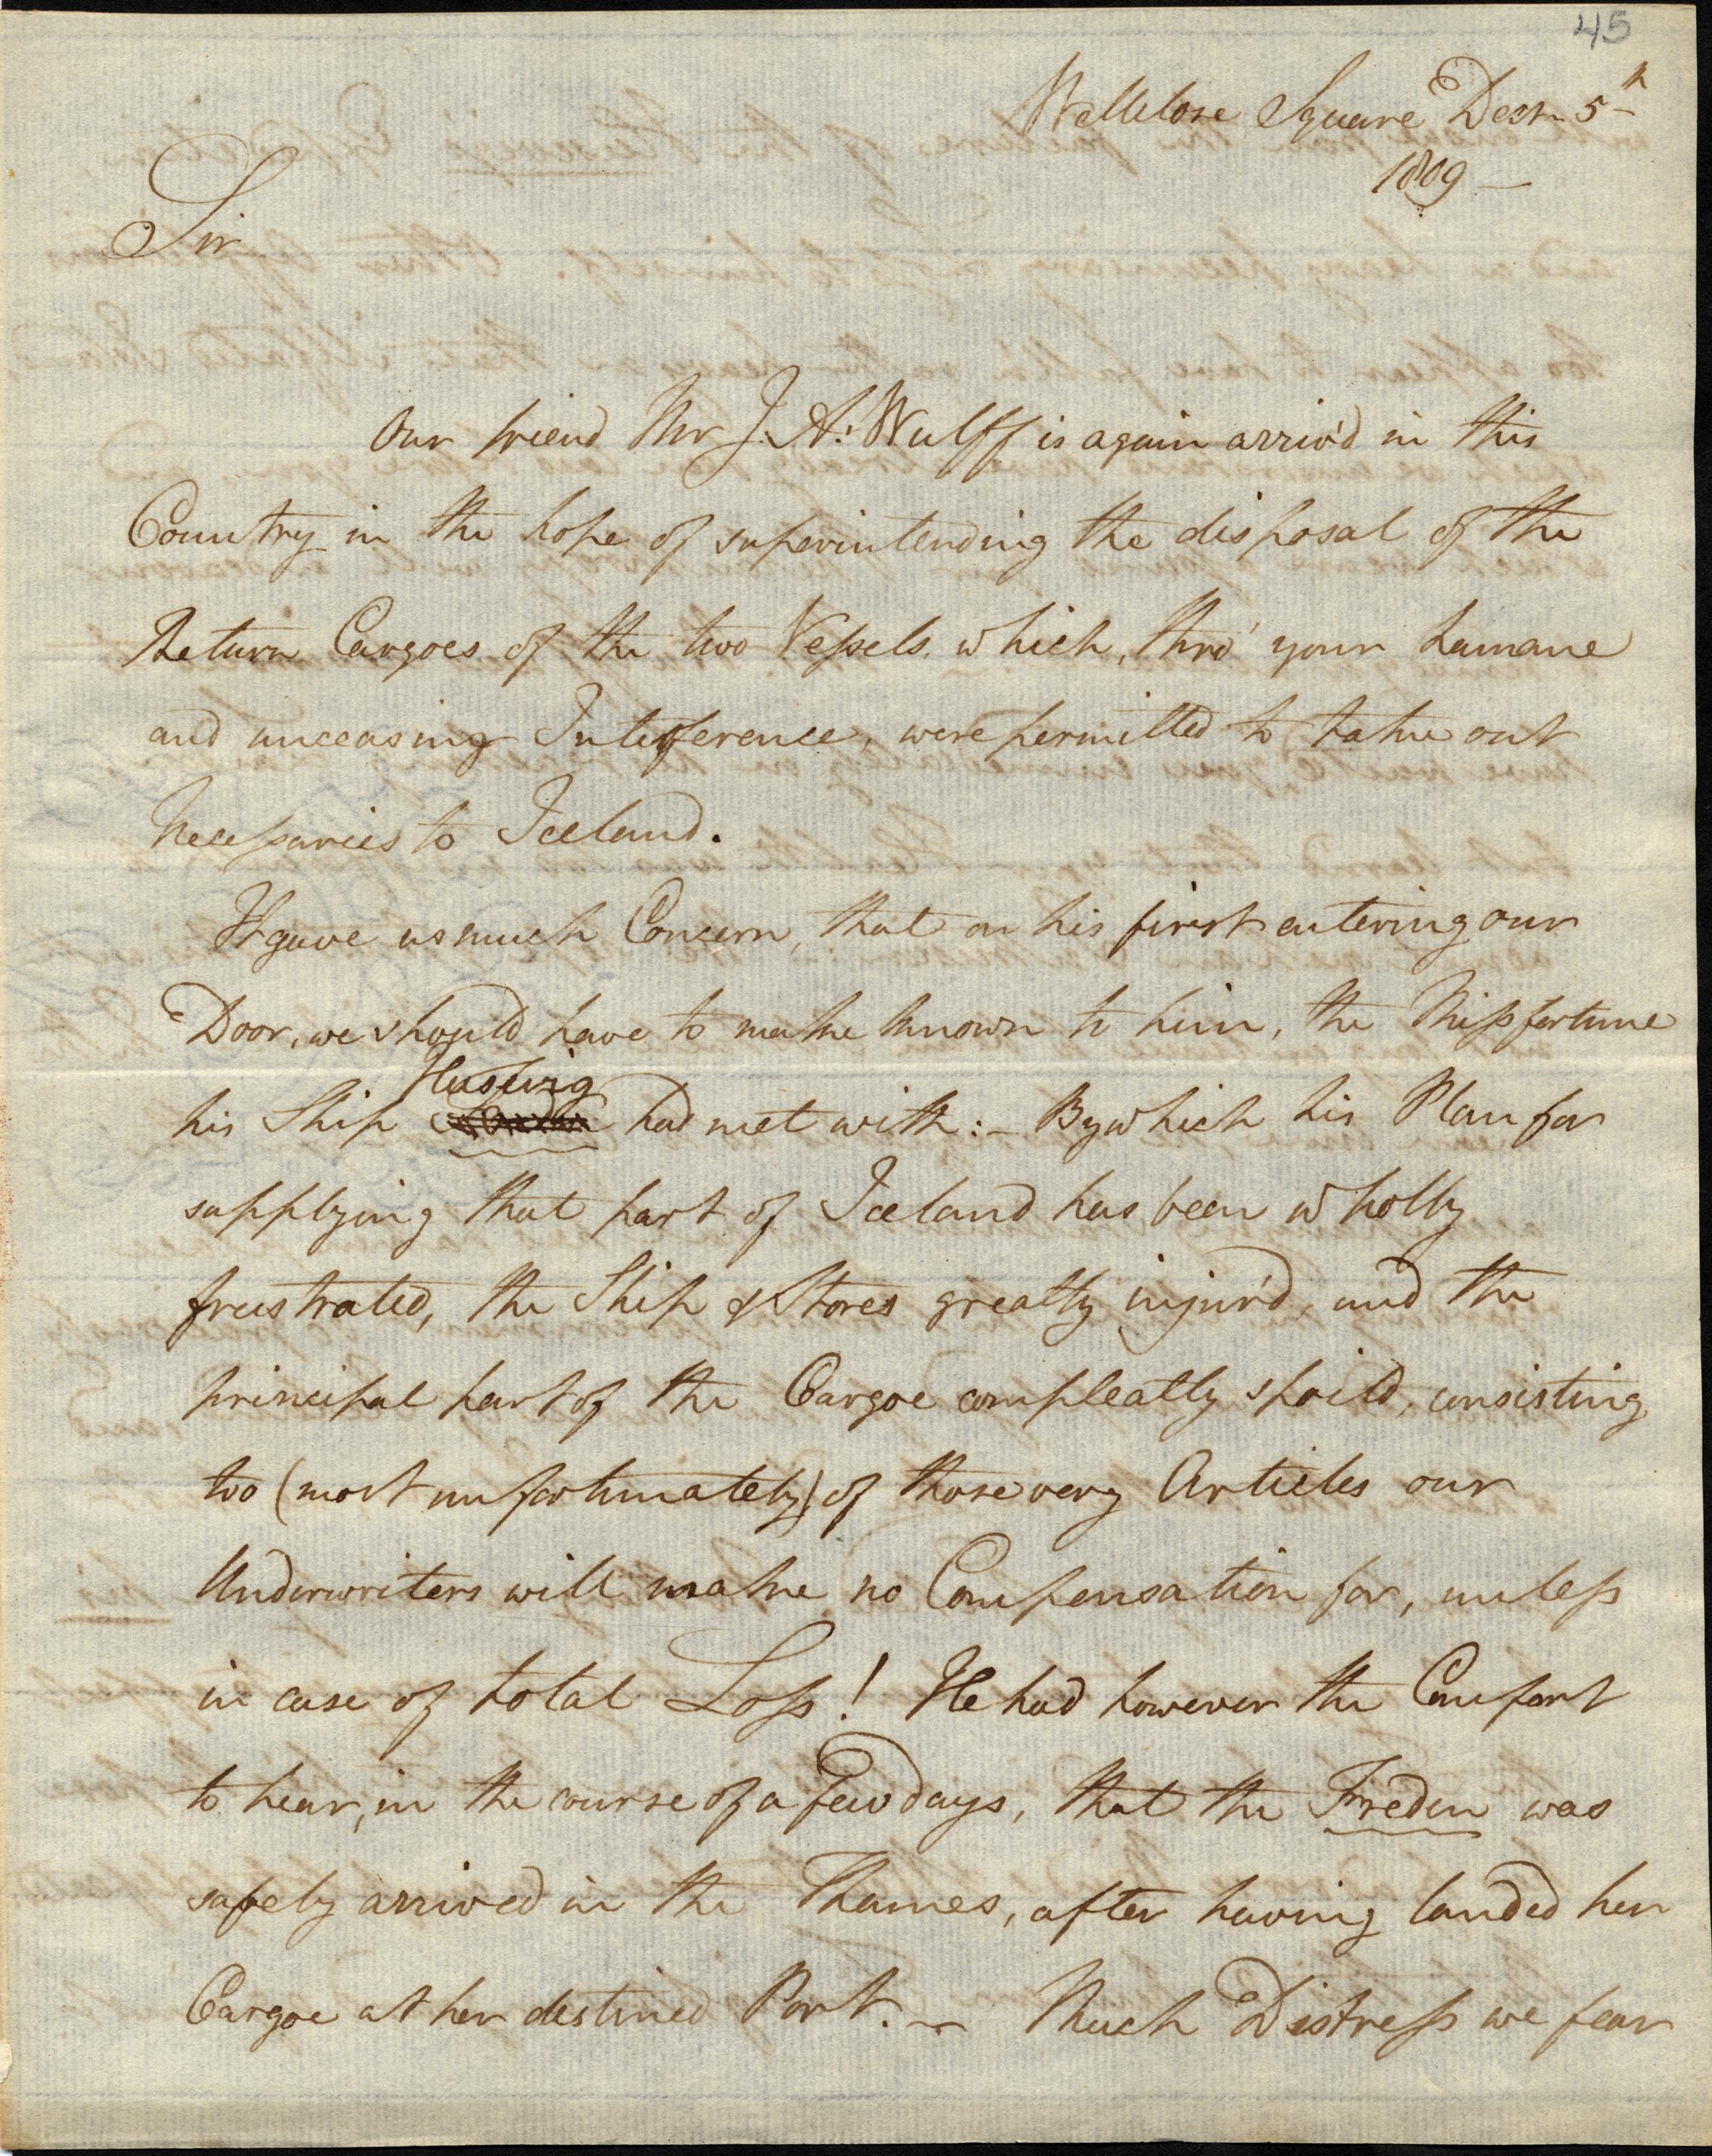 45
Wellclose Square Decr. 5th
1809 —
Sir
Our friend Mr J. A. Wulff is again arriv'd in this
Country in the hope of superintending the disposal of the
Return Cargoes of the two Vessels, which, thro' your humane
and unceasing Interference, were permitted to take out
Necessaries to Iceland.
It gave us much Concern, that on his first entering our
Door, we should have to make known to him, the Missfortune
Husevig
his Ship had met with: — By which his Plan for
supplying that part of Iceland has been wholly
frustrated, the Ship & Stores greatly injur'd, and the
principal part of the Cargoe compleatly spoil'd, consisting
too (most unfortunately) of those very Articles our
Underwriters will make no Compensation for, unless
in case of total Loss! He had however the Comfort
to hear, in the course of a few days, that the Freden was
safely arrived in the Thames, after having landed her
Cargoe at her destined Port. — Much Distress we fear